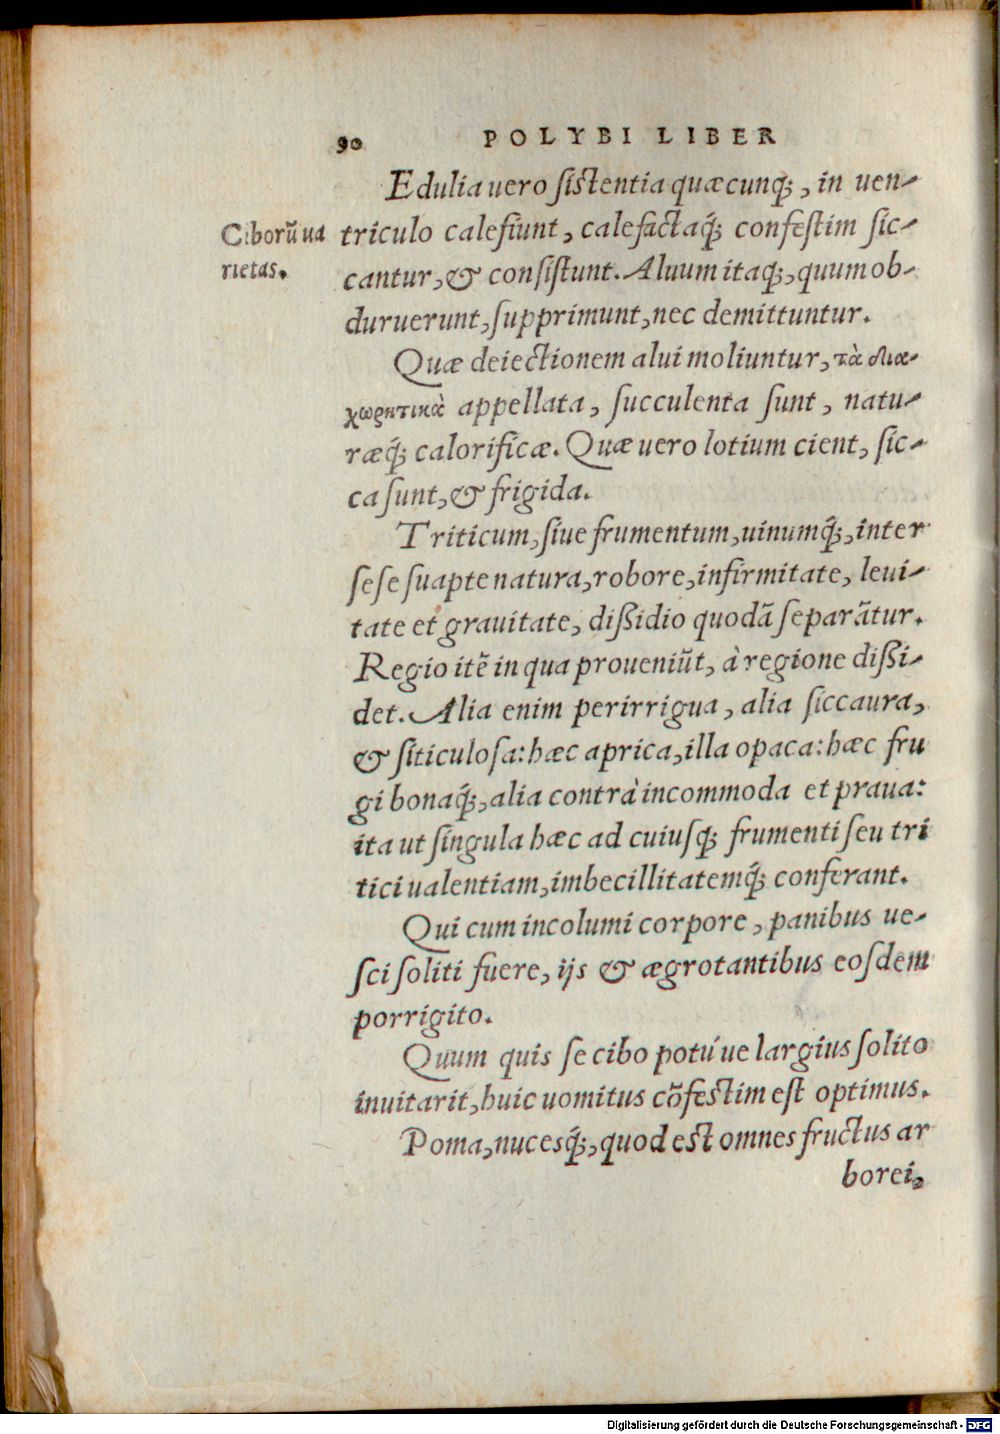 90 POLYBI LIBER
Edulia uero ſiſtentia quæcunq;, in uen-
Ciborũ ua
rietas.
triculo calefiunt, calefactaq́; confeſtim ſic-
cantur, & conſiſtunt. Aluum itaq;, quum ob-
duruerunt, ſupprimunt, nec demittuntur.
Quæ deiectionem alui moliuntur, τὰ δια-
χωρητικὰ appellata, ſucculenta ſunt, natu-
ræq́; calorificæ. Quæ uero lotium cient, ſic-
ca ſunt, & frigida.
Triticum, ſiue frumentum, uinumq́;, inter
ſeſe ſuapte natura, robore, infirmitate, leui-
tate et grauitate, dißidio quodã ſeparãtur.
Regio itẽ in qua proueniũt, à regione dißi-
det. Alia enim perirrigua, alia ſiccaura,
& ſiticuloſa: hæc aprica, illa opaca: hæc fru
gi bonaq́;, alia contrà incommoda et praua:
ita ut ſingula hæc ad cuiuſq; frumenti ſeu tri
tici ualentiam, imbecillitatemq́; conferant.
Qui cum incolumi corpore, panibus ue-
ſci ſoliti fuere, ijs & ægrotantibus eoſdem
porrigito.
Quum quis ſe cibo potú ue largius ſolito
inuitarit, huic uomitus cõfeſtim eſt optimus.
Poma, nucesq́;, quod eſt omnes fructus ar
borei,
Digitalisierung gefördert durch die Deutsche Forschungsgemeinschaft - DFG